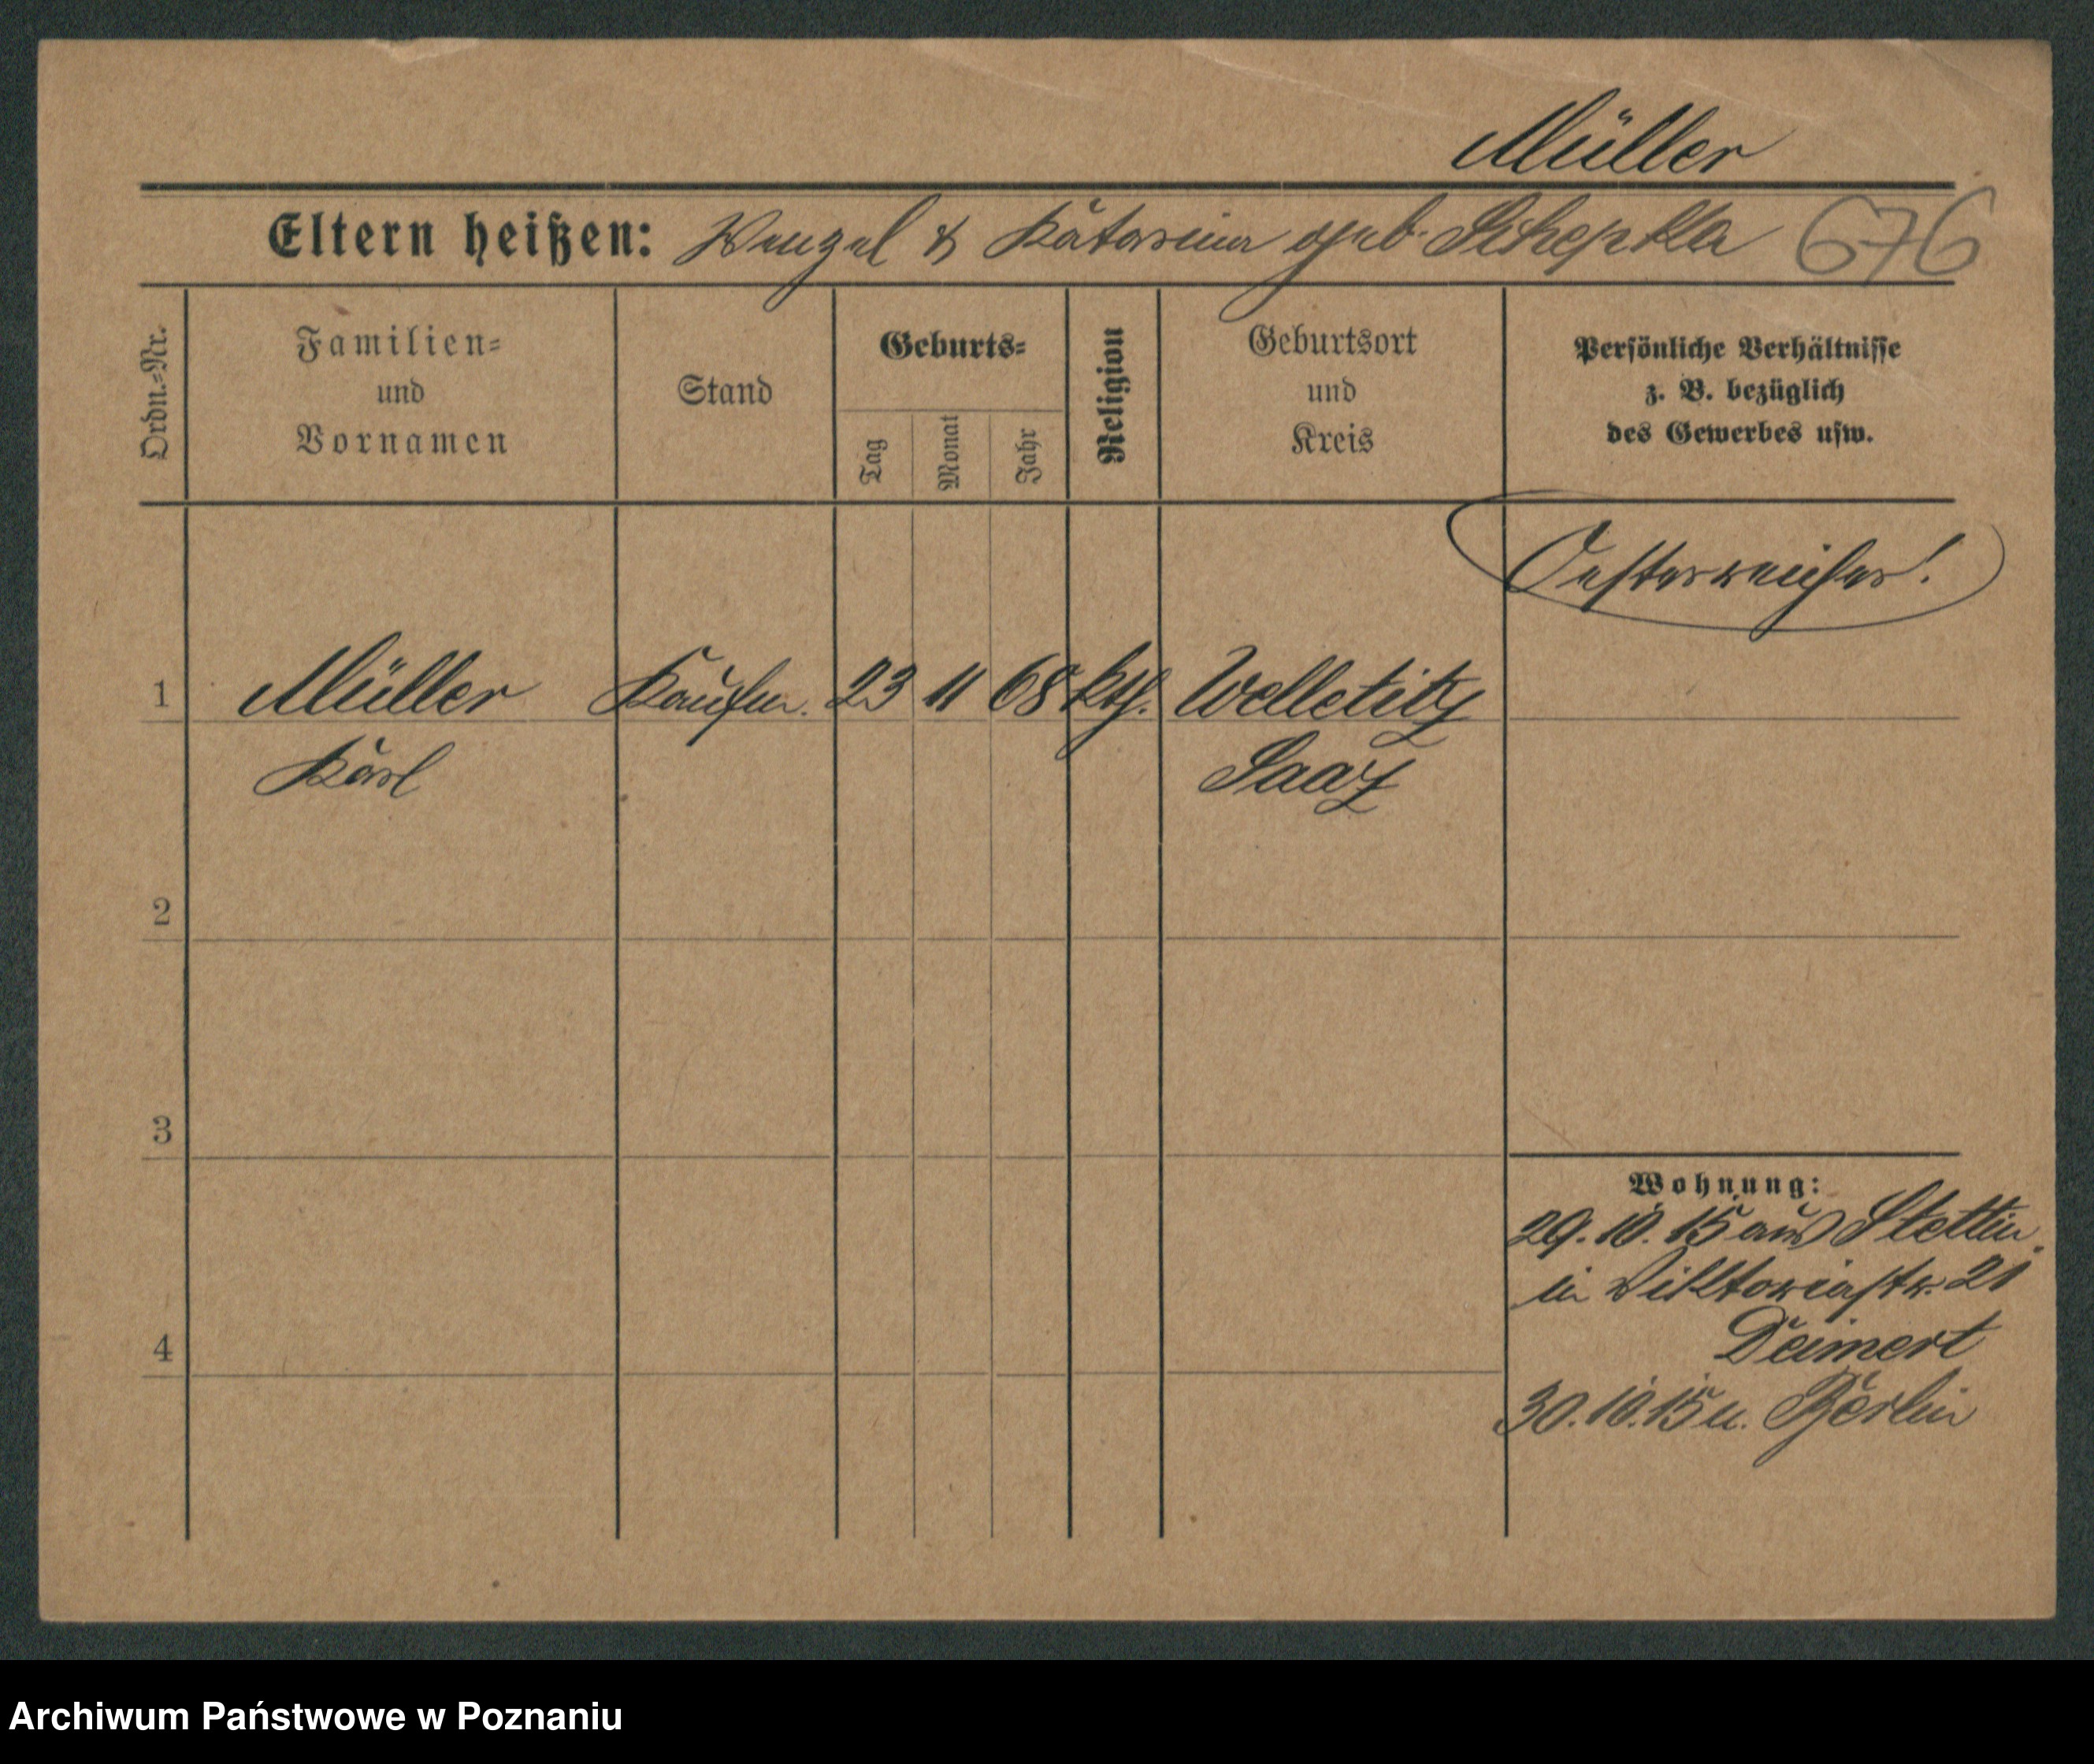 Müller
Eltern heißen: Wenzel & Katarina geb. Schepka 676
Ordn.=Nr.
Familien=
und
Vornamen
Stand
Geburts=
Tag
Monat
Jahr
Religion
Geburtsort
und
Kreis
Persönliche Verhältnisse
z. B. bezüglich
des Gewerbes usw.
Oesterreicher!
1 Müller Kaufm. 23 11 68 kth. Welletitz
Karl Saaz
2
3
Wohnung:
29.10.15 aus Stettin
in Viktoriastr. 21
4
Deimert
30.10.15 u. Berlin
Archiwum Państwowe w Poznaniu